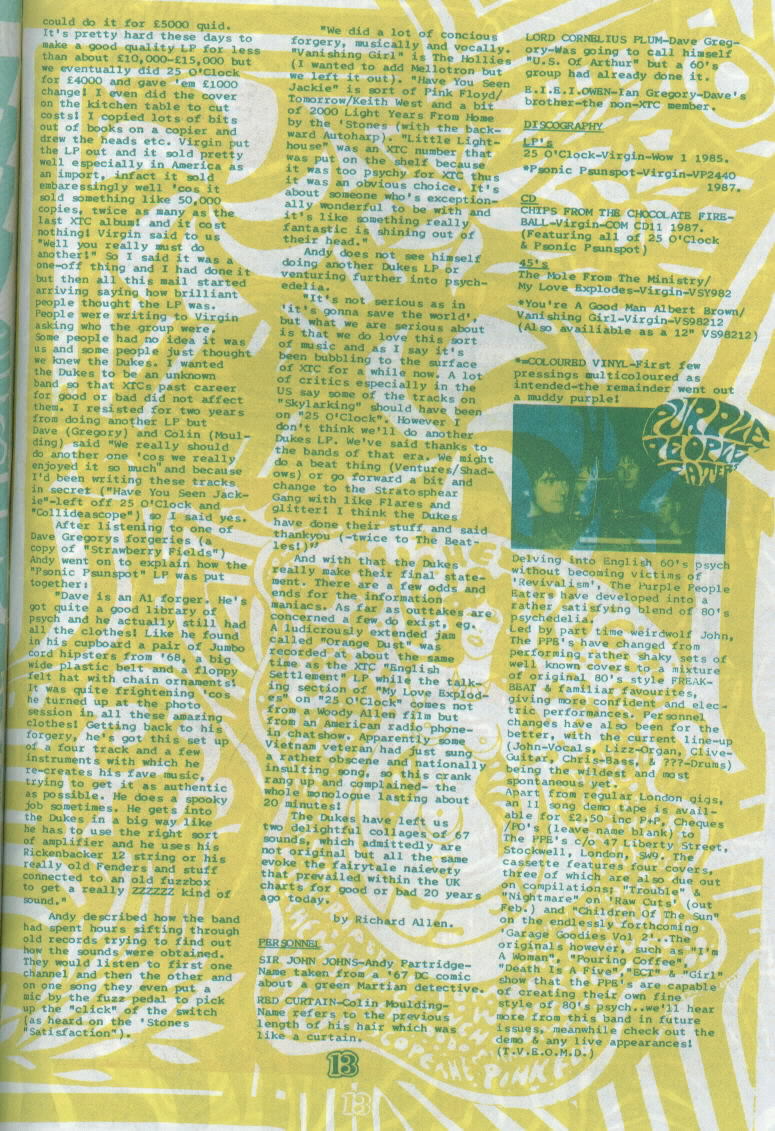 could do it for £5000 quid.
It's pretty hard these days to
make a good quality LP for less
than about £10,000-£15,000 but
we eventually did 25 O'Clock
for £4000 and gave 'em £1000
change! I even did the cover
on the kitchen table to cut
costs! I copied lots of bits
out of books on a copier and
drew the heads etc. Virgin put
the LP out and it sold pretty
well especially in America as
an import, infact it sold
embaressingly well 'cos it
sold something like 50,000
copies, twice as many as the
last XTC album! and it cost
nothing! Virgin said to us
"Well you really must do
another!" So I said it was a
one-off thing and I had done it
but then all this mail started
arriving saying how brilliant
people thought the LP was.
People were writing to Virgin
asking who the group were.
Some people had no idea it was
us and some people just thought
we knew the Dukes. I wanted
the Dukes to be an unknown
band so that XTCs past career
for good or bad did not affect
them. I resisted for two years
from doing another LP but
Dave (Gregory) and Colin (Moul-
ding) said "We really should
do another one 'cos we really
enjoyed it so much" and because
I'd been writing these tracks
in secret ("Have You Seen Jack-
ie"-left off 25 O'Clock and
"Collideascope") so I said yes.
After listening to one of
Dave Gregorys forgeries (a
copy of "Strawberry Fields")
Andy went on to explain how the
"Psonic Psunspot" LP was put
together:
"Dave is an A1 forger. He's
got quite a good library of
psych and he actually still had
all the clothes! Like he found
in his cupboard a pair of Jumbo
cord hipsters from '68, a big
wide plastic belt and a floppy
felt hat with chain ornaments!
It was quite frightening 'cos
he turned up at the photo
session in all these amazing
clothes! Getting back to his
forgery, he's got this set up
of a four track and a few
instruments with which he
re-creates his fave music,
trying to get it as authentic
as possible. He does a spooky
job sometimes. He gets into
the Dukes in a big way like
he has to use the right sort
of amplifier and he uses his
Rickenbacker 12 string or his
really old Fenders and stuff
connected to an old fuzzbox
to get a really ZZZZZZ kind of
sound."
Andy described how the band
had spent hours sifting through
old records trying to find out
how the sounds were obtained.
They would listen to first one
channel and then the other and
on one song they even put a
mic by the fuzz pedal to pick
up the "click" of the switch
(as heard on the 'Stones
"Satisfaction").
"We did a lot of concious
forgery, musically and vocally.
"Vanishing Girl" is The Hollies
(I wanted to add Mellotron but
we left it out). "Have You Seen
Jackie" is sort of Pink Floyd/
Tomorrow/Keith West and a bit
of 2000 Light Years From Home
by the 'Stones (with the back-
ward Autoharp). "Little Light-
house" was an XTC number that
was put on the shelf because
it was too psychy for XTC thus
it was an obvious choice. It's
about someone who's exception-
ally wonderful to be with and
it's like something really
fantastic is shining out of
their head."
Andy does not see himself
doing another Dukes LP or
venturing further into psych-
edelia.
"It's not serious as in
'it's gonna save the world',
but what we are serious about
is that we do love this sort
of music and as I say it's
been bubbling to the surface
of XTC for a while now. A lot
of critics especially in the
US say some of the tracks on
"Skylarking" should have been
on "25 O'Clock". However I
don't think we'll do another
Dukes LP. We've said thanks to
the bands of that era. We might
do a beat thing (Ventures/Shad-
ows) or go forward a bit and
change to the Stratosphear
Gang with like Flares and
glitter! I think the Dukes
have done their stuff and said
thankyou (-twice to The Beat-
les!)"
And with that the Dukes
really make their final state-
ment. There are a few odds and
ends for the information
maniacs. As far as outtakes are
concerned a few do exist, eg.
A ludicrously extended jam
called "Orange Dust" was
recorded at about the same
time as the XTC "English
Settlement" LP while the talk-
ing section of "My Love Explod-
es" on "25 O'Clock" comes not
from a Woody Allen film but
from an American radio phone-
in chatshow. Apparently some
Vietnam veteran had just sung
a rather obscene and nationally
insulting song, so this crank
rang up and complained- the
whole monologue lasting about
20 minutes!
The Dukes have left us
two delightful collages of 67
sounds, which admittedly are
not original but all the same
evoke the fairytale naievety
that prevailed within the UK
charts for good or bad 20 years
ago today.
by Richard Allen.
PERSONNEL
SIR JOHN JOHNS-Andy Partridge-
Name taken from a '67 DC comic
about a green Martian detective.
RED CURTAIN-Colin Moulding-
Name refers to the previous
length of his hair which was
like a curtain.
LORD CORNELIUS PLUM-Dave Greg-
ory-Was going to call himself
"U.S. Of Arthur" but a 60's
group had already done it.
E.I.E.I.OWEN-Ian Gregory-Dave's
brother-the non-XTC member.
DISCOGRAPHY
LP's
25 O'Clock-Virgin-Wow 1 1985.
*Psonic Psunspot-Virgin-VP2440
1987.
CD
CHIPS FROM THE CHOCOLATE FIRE-
BALL-Virgin-COM CD11 1987.
(Featuring all of 25 O'Clock
& Psonic Psunspot)
45's
The Mole From The Ministry/
My Love Explodes-Virgin-VSY982
*You're A Good Man Albert Brown/
Vanishing Girl-Virgin-VS98212
(Also availiable as a 12" VS98212)
*=COLOURED VINYL-First few
pressings multicoloured as
intended-the remainder went out
a muddy purple!
PURPLE
PEOPLE
EATERS
Delving into English 60's psych
without becoming victims of
'Revivalism', The Purple People
Eaters have developed into a
rather satisfying blend of 80's
psychedelia.
Led by part time weirdwolf John,
The PPE's have changed from
performing rather shaky sets of
well known covers to a mixture
of original 80's style FREAK-
BEAT & familiar favourites,
giving more confident and elec-
tric performances. Personnel
changes have also been for the
better, with the current line-up
(John-Vocals, Lizz-Organ, Clive-
Guitar, Chris-Bass, & ???-Drums)
being the wildest and most
spontaneous yet.
Apart from regular London gigs,
an 11 song demo tape is avail-
able for £2.50 inc P+P. Cheques
/PO's (leave name blank) to
The PPE's c/o 47 Liberty Street,
Stockwell, London, SW9. The
cassette features four covers,
three of which are also due out
on compilations; "Trouble" &
"Nightmare" on 'Raw Cuts' (out
Feb.) and "Children Of The Sun"
on the endlessly forthcoming
'Garage Goodies Vol 2'..The
originals however, such as "I'm
A Woman", "Pouring Coffee",
"Death Is A Five", "ECT" & "Girl"
show that the PPE's are capable
of creating their own fine
style of 80's psych..we'll hear
more from this band in future
issues, meanwhile check out the
demo & any live appearances!
(T.V.E.O.M.D.)
13
13
THE PINK